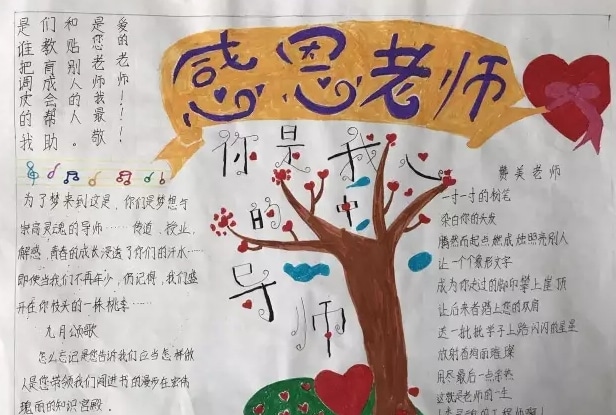 是谁把调皮的我
们教育成会帮助
和贴别人的人。
是您老师我最敬
爱的老师！！！
感恩老师
你是我心
的中
导
师
为了梦来到这是，你们是梦想与
崇高灵魂的导师……传道，授业，
解惑，青春的成长浸透了你们的汗水……
即使当我们不再年少，仍记得，我们盛
开在你枝头的一株桃李……
九月颂歌
怎么忘记是您告诉我们应当怎样做
人是您带领我们闯进书的漫步在宏伟
瑰丽的知识宫殿。
赞美老师
一寸一寸的粉笔
染白你的头发
腾然而起点燃成烛照亮别人
让一个个象形文字
成为你走过的脚印攀上崖顶
让后来者踏上您的双肩
这一批批学子上路闪闪的星星
放射着绚丽璀璨
用尽最后一点余热
这就是老师的一生